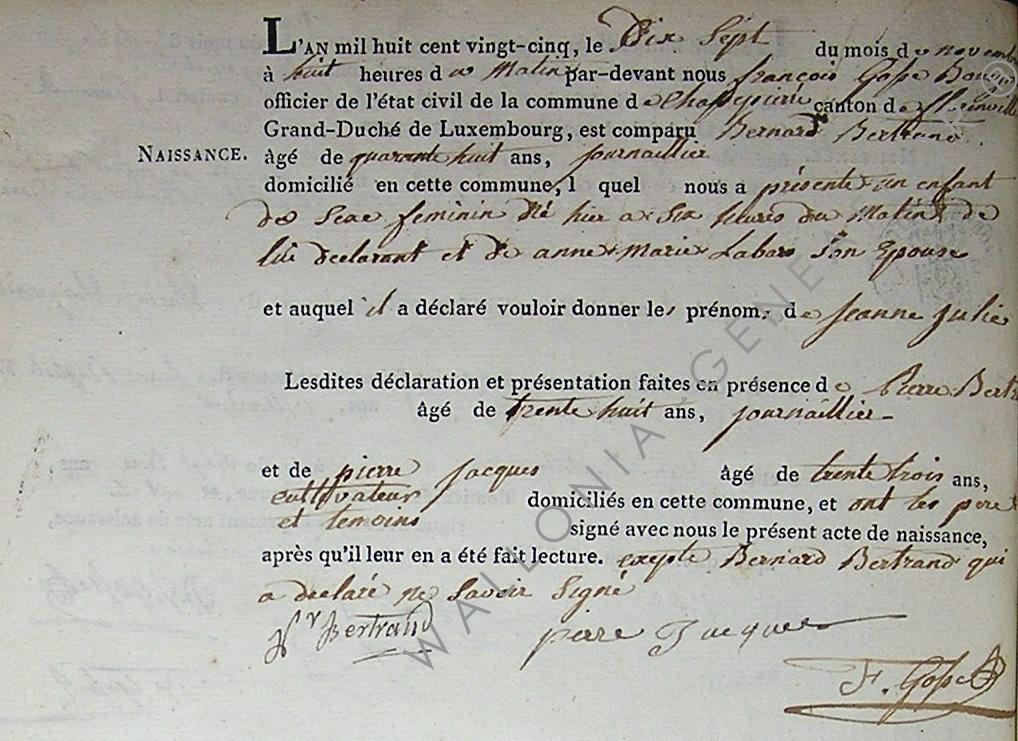 L'AN mil huit cent vingt-cinq, le Dix Sept du mois de novembre
à huit heures du Matin par-devant nous françois
officier de l'état civil de la commune de canton de
Grand-Duché de Luxembourg, est comparu Bernard Bertrand
NAISSANCE. âgé de quarante huit ans, journaillier
domicilié en cette commune, l quel nous a présenté un enfant
de Sexe feminin Né hier a Six heures du Matin de
lui declarant et de anne Marie Labar son Epouse
et auquel il a déclaré vouloir donner les prénom. de Jeanne julie
Lesdites déclaration et présentation faites en présence de Pierre Bertr
âgé de trente huit ans, journaillier
et de pierre jacques âgé de trente trois ans,
cultivateur domiciliés en cette commune, et ont les pere
et temoins signé avec nous le présent acte de naissance,
après qu'il leur en a été fait lecture. exepte Bernard Bertrand qui
a declaré ne Savoir Signé
Bertrand pierre Jacques
F.
WALLONIA GENE